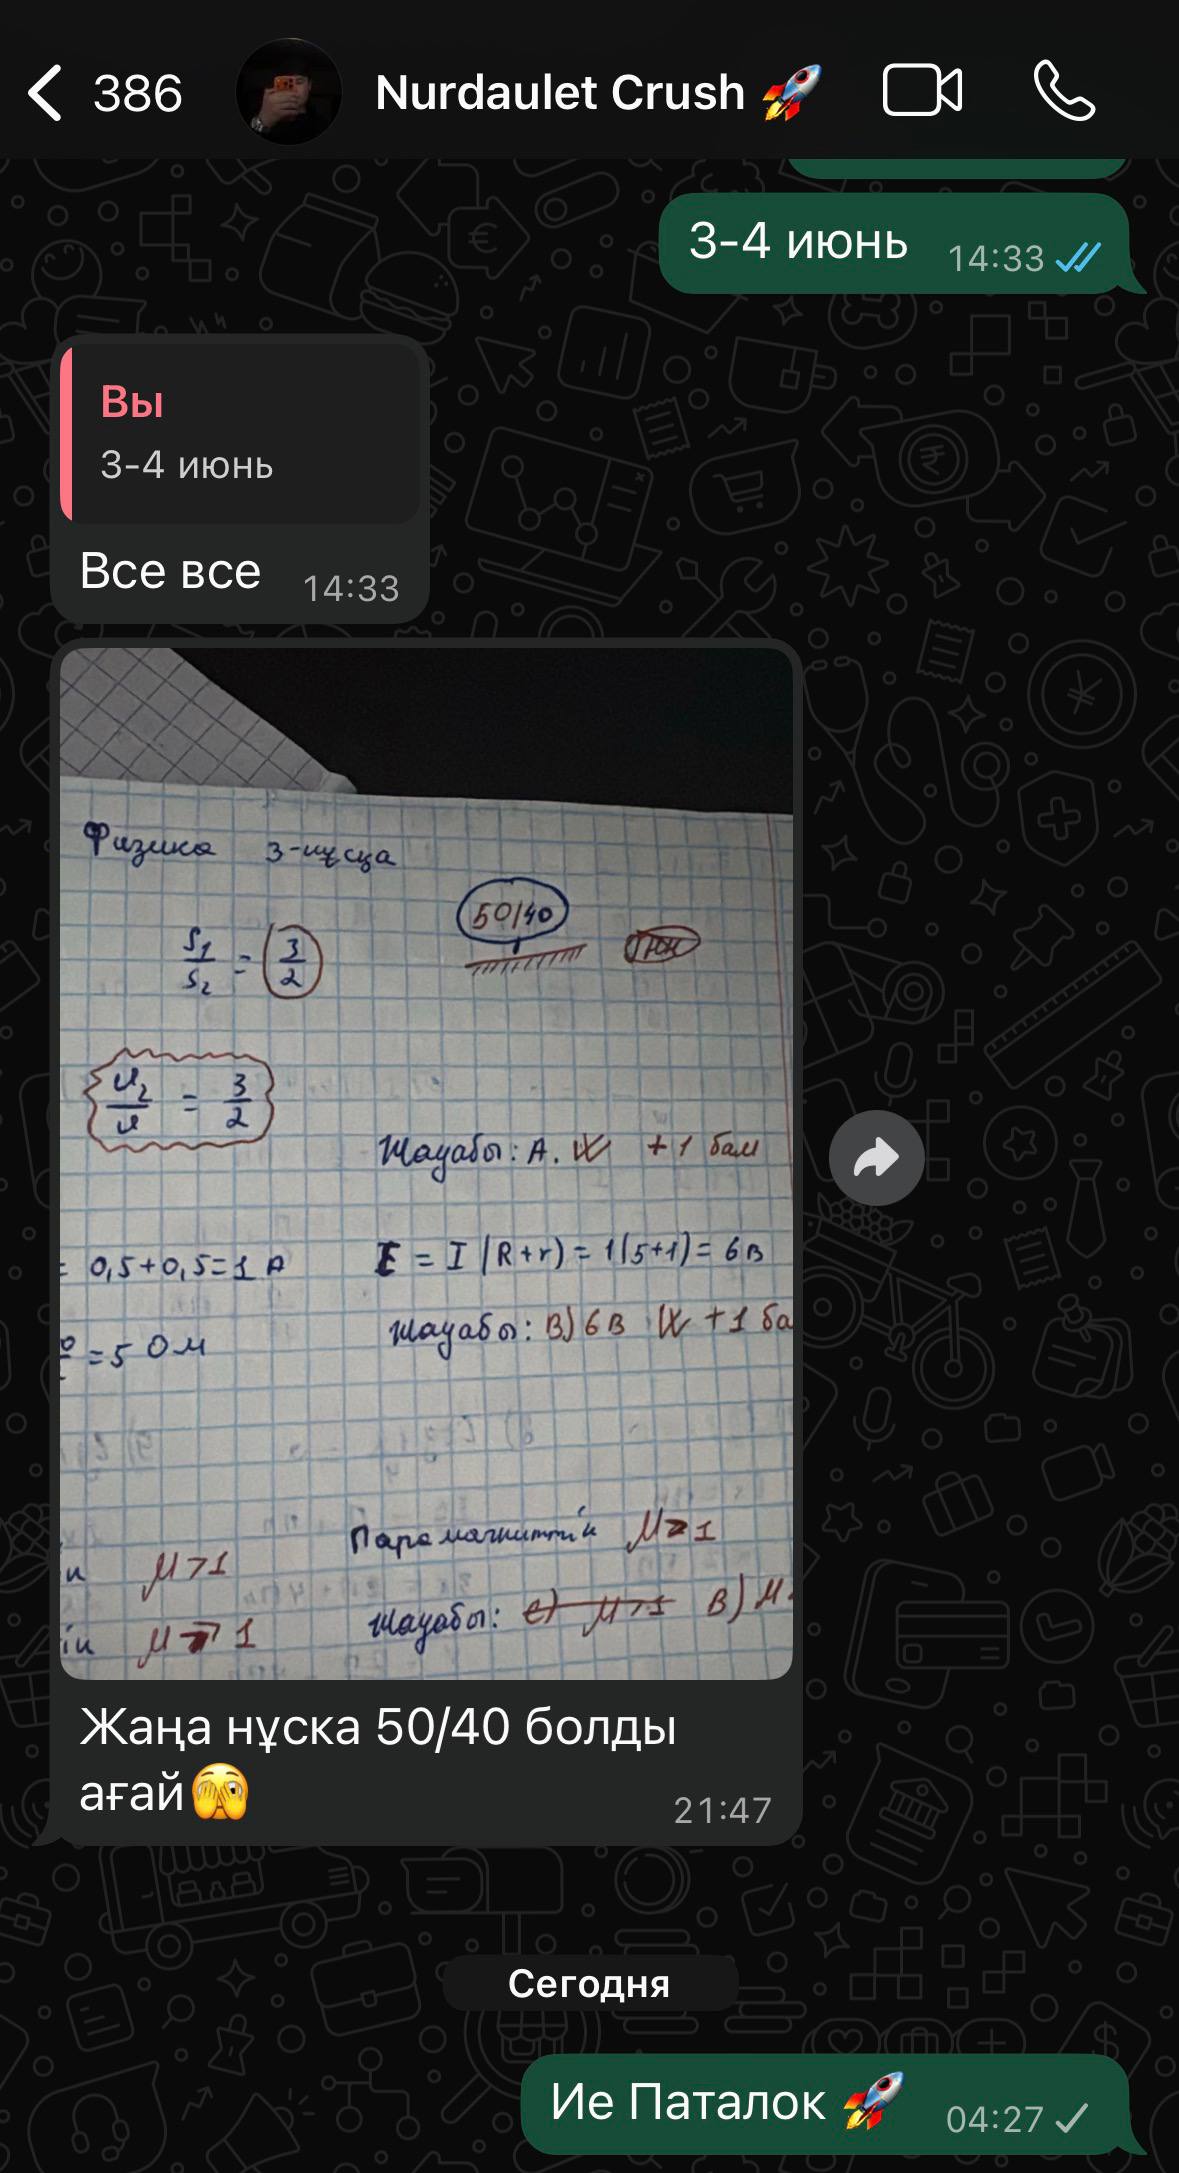 386
Nurdaulet Crush 🚀
3-4 июнь 14:33
Вы
3-4 июнь
Все все 14:33
Физика 3-нұсқа
50/40
S₁/S₂ = 3/2
U₂/U = 3/2
Жауабы: А. + 1 бал
= 0,5+0,5=1 А
E = I (R+r) = 1(5+1) = 6В
Жауабы: В) 6В + 1 ба
= 5 Ом
Парамагниттік М>1
М>1
Жауабы: с) М>1 В) М
ік М>1
Жаңа нұска 50/40 болды
ағай🫣
21:47
Сегодня
Ие Паталок 🚀 04:27